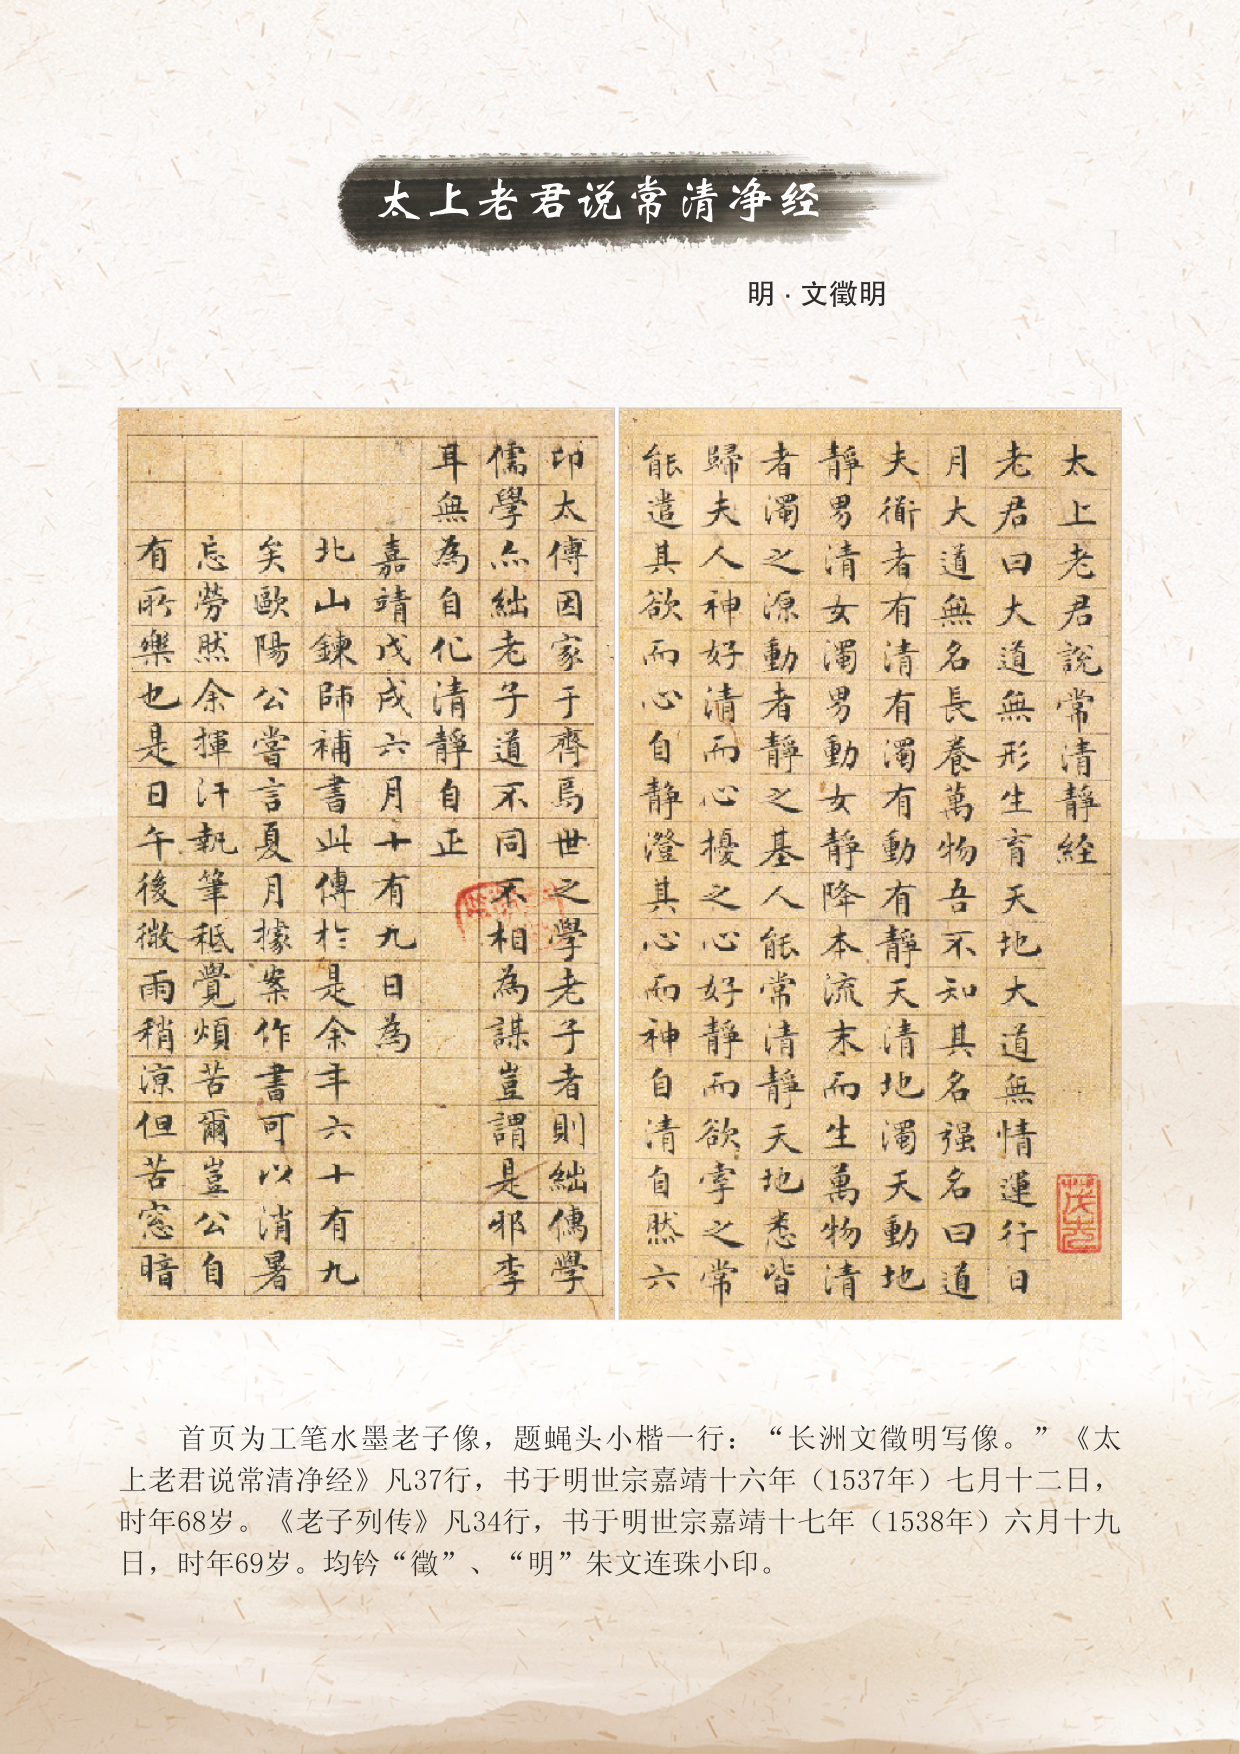 太上老君说常清净经
明·文徵明
太上老君說常清靜経
老君曰大道無形生育天地大道無情運行日
月大道無名長養萬物吾不知其名强名曰道
夫衜者有清有濁有動有靜天清地濁天動地
靜男清女濁男動女靜降本流末而生萬物清
者濁之源動者靜之基人能常清靜天地悉皆
歸夫人神好清而心擾之心好靜而欲牽之常
能遣其欲而心自静澄其心而神自清自然六
卬太傅因家于齊焉世之學老子者則絀儒學
儒學亦絀老子道不同不相為謀豈謂是邪李
耳無為自化清靜自正
嘉靖戊戌六月十有九日為
北山鍊師補書此傳於是余年六十有九
矣歐陽公嘗言夏月據案作書可以消暑
忘勞然余揮汗執筆秪覺煩苦爾豈公自
有所樂也是日午後微雨稍涼但苦窓暗
首页为工笔水墨老子像，题蝇头小楷一行：“长洲文徵明写像。”《太
上老君说常清净经》凡37行，书于明世宗嘉靖十六年（1537年）七月十二日，
时年68岁。《老子列传》凡34行，书于明世宗嘉靖十七年（1538年）六月十九
日，时年69岁。均钤“徵”、“明”朱文连珠小印。